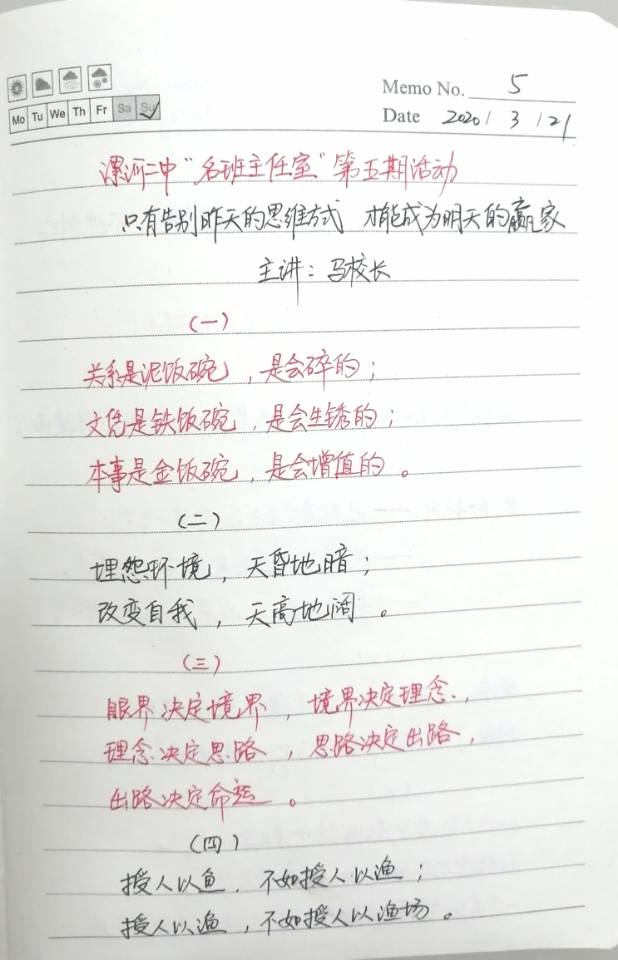 Memo No. 5
Mo Tu We Th Fr Sa Su
Date 2020 / 3 / 21
漯河二中“名班主任室”第五期活动
只有告别昨天的思维方式 才能成为明天的赢家
主讲：马校长
（一）
关系是泥饭碗，是会碎的；
文凭是铁饭碗，是会生锈的；
本事是金饭碗，是会增值的。
（二）
埋怨环境，天昏地暗；
改变自我，天高地阔。
（三）
眼界决定境界，境界决定理念，
理念决定思路，思路决定出路，
出路决定命运。
（四）
授人以鱼，不如授人以渔；
授人以渔，不如授人以渔场。